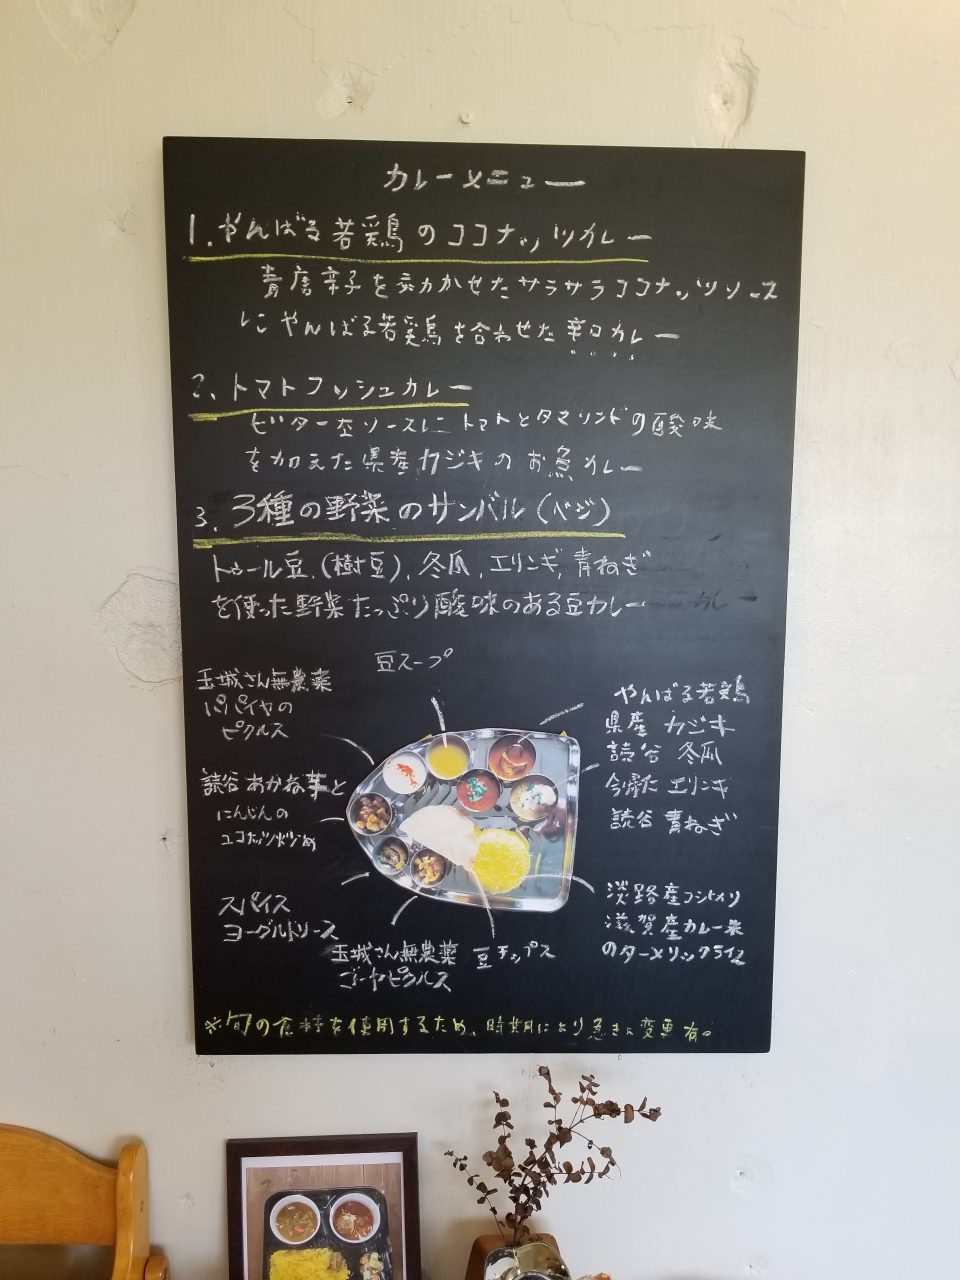 カレーメニュー
1. やんばる若鶏のココナッツカレー
青唐辛子を効かせたサラサラココナッツソース
にやんばる若鶏を合わせた辛口カレー
2. トマトフィッシュカレー
ビターなソースにトマトとタマリンドの酸味
を加えた県産カジキのお魚カレー
3. 3種の野菜のサンバル(ベジ)
トゥール豆(樹豆)、冬瓜、エリンギ、青ねぎ
を使った野菜たっぷり酸味のある豆カレー
豆スープ
玉城さん無農薬
パパイヤの
ピクルス
読谷あかね芋と
にんじんの
ココナッツ炒め
スパイス
ヨーグルトソース
玉城さん無農薬
ゴーヤピクルス
豆チップス
やんばる若鶏
県産 カジキ
読谷 冬瓜
今帰仁 エリンギ
読谷 青ねぎ
淡路産コシヒカリ
滋賀産カレー米
のターメリックライス
※旬の食材を使用するため、時期により急きょ変更有。